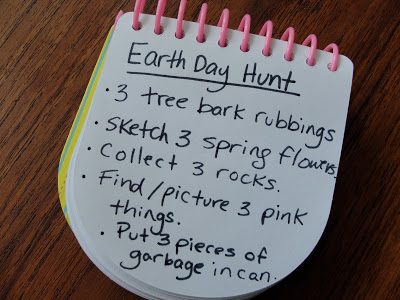 Earth Day Hunt
· 3 tree bark rubbings
· Sketch 3 spring flowers.
· Collect 3 rocks.
· Find/picture 3 pink
things.
· Put 3 pieces of
garbage in can.